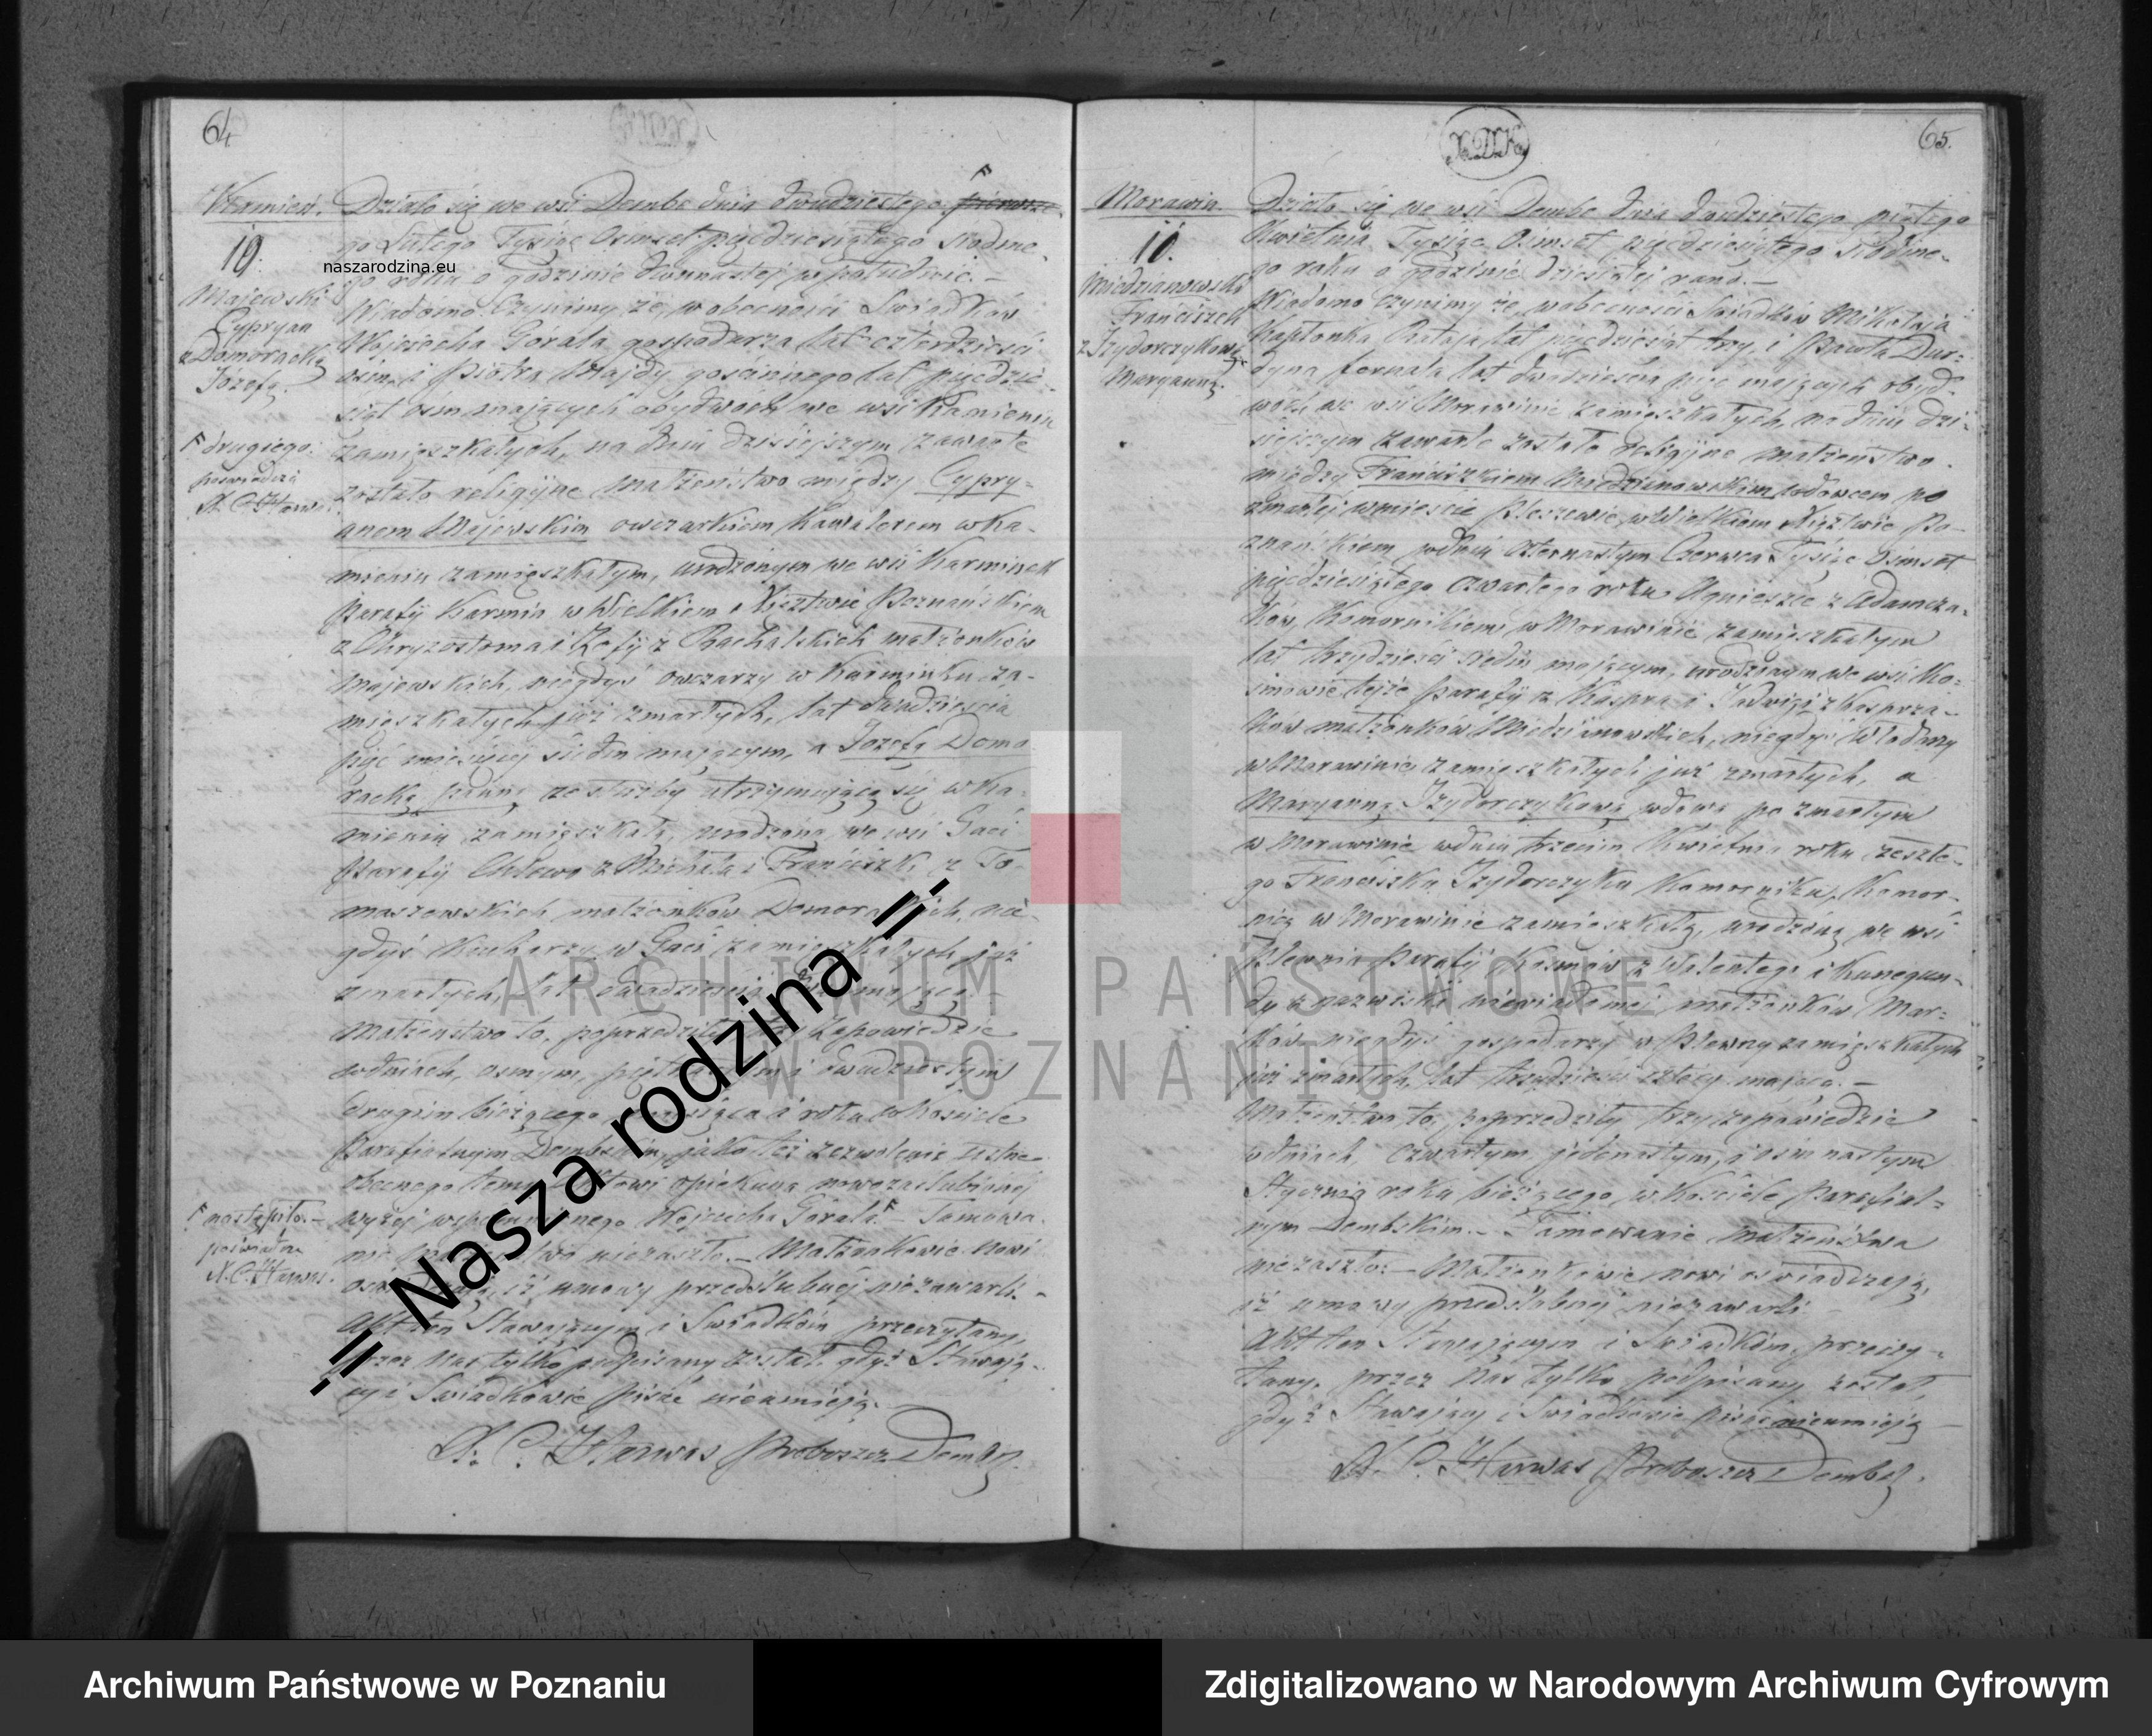 64
Kamień.
10.
Majewski
Cypryan
z Domoracką
Józefą.
drugiego.
poświadcza
X. C. Harwas
Działo się we wsi Dembe dnia dwudziestego pierwsze
go Lutego Tysiąc Osimset pięcdziesiątego Siodme
go roku o godzinie dwunastej w południe. –
Wiadomo Czynimy, że w obecności Swiadków
Wojciecha Górala gospodarza lat czterdzieści
osim, i Piotra Majdy gościnnego lat pięcdzie-
siąt osim mających obydwoch we wsi Kamieniu
zamięszkałych, na dniu dzisiejszym zawarte
zostało religijne małżeństwo między Cypry-
anem Majewskim owczarkiem Kawalerem w Ka-
mieniu zamięszkałym, urodzonym we wsi Karminek
Parafij Karmin w Wielkiem Xięztwie Poznańskiem
z Chryzostoma i Zofij z Rachalskich małżonków
Majewskich, niegdyś owczarzy w Karminku za-
mięszkałych już zmarłych, lat dwadzieścia
pięć miesięcy siedm mającym, a Józefą Domo
racką panną ze służby utrzymującą się w Ka-
mieniu zamięszkałą, urodzoną we wsi Gać
Parafij Chlewo z Michała i Franciszki z To-
maszewskich małżonków Domorackich, nie-
gdyś Kucharzy w Gaci zamięszkałych już
zmarłych, lat dwadzieścia mającą. –
Małżeństwo to, poprzedziły trzy zapowiedzie
w dniach, osmym, piętnastym i dwudziestym
drugim bieżącego miesiąca i roku w Kościele
Parafialnym Dembskim, jako też zezwolenie ustne
obecnego temu Aktowi opiekuna nowozaślubionej
wyżej wspomnionego Wojciecha Górala. – Tamowa-
nie małżeństwa niezaszło. – Małżonkowie nowi
oświadczają, iż umowy przedślubnej niezawarli. –
Akt ten Stawającym i Swiadkom przeczytany,
przez Nas tylko podpisany został, gdyż Stawają-
cy i Swiadkowie pisać nieumieją.
X. C. Harwas Proboszcz Dembs.
nastąpiło. –
poświadcza
X. C. Harwas.
naszarodzina.eu
=: Nasza rodzina :=
65.
X.D.K.
Morawin.
11.
Miedzianowski
Franciszek
z Izydorczykową
Maryanną.
Działo się we wsi Dembe dnia dwudziestego piątego
Kwietnia Tysiąc Osimset pięcdziesiątego Siodme-
go roku o godzinie dziesiątej rano. –
Wiadomo czynimy że w obecności Swiadków Mikołaja
Kapłonka Rataja lat pięcdziesiąt trzy, i Pawła Dur-
dyna fornala lat dwadzieścia pięć mających obyd
woch we wsi Morawinie zamięszkałych, na dniu dzi-
siejszym zawarte zostało religijne małżeństwo
między Franciszkiem Miedzianowskim wdowcem po
zmarłej w mieście Pleszewie w Wielkiem Xięztwie Po-
znańskiem w dniu czternastym Czerwca Tysiąc Osimset
pięcdziesiątego czwartego roku Agnieszce z Adamcza-
ków, Komornikiem w Morawinie zamieszkałym
lat trzydzieści siedm mającym, urodzonym we wsi Ko-
smowie tejże parafij z Kaspra i Jadwigi z Kasprza-
ków małżonków Miedzianowskich, niegdyś Włodarzy
w Morawinie zamięszkałych już zmarłych, a
Maryanną Izydorczykową wdową po zmarłym
w Morawinie w dniu trzecim Kwietnia roku zeszłe-
go Franciszku Izydorczyku Komorniku, Komor-
nicą w Morawinie zamieszkałą, urodzoną we wsi
Plewnia Parafij Kosmów z Walentego i Kunegun-
dy z nazwiska niewiadomej małżonków Mar-
ków niegdyś gospodarzy w Plewny zamięszkałych
już zmarłych, lat trzydzieści cztery mającą. –
Małżeństwo to, poprzedziły trzy zapowiedzie
w dniach, czwartym, jedenastym, i osimnastym
Stycznia roku bieżącego w Kościele Parafial-
nym Dembskim. – Tamowanie małżeństwa
niezaszło. – Małżonkowie nowi oświadczają,
iż umowy przedślubnej niezawarli –
Akt ten Stawającym i Swiadkom przeczy-
tany, przez Nas tylko podpisany został,
gdyż Stawający i Swiadkowie pisać nieumieją –
X. C. Harwas Proboszcz Dembs.
ARCHIWUM PAŃSTWOWE
W POZNANIU
Archiwum Państwowe w Poznaniu
Zdigitalizowano w Narodowym Archiwum Cyfrowym